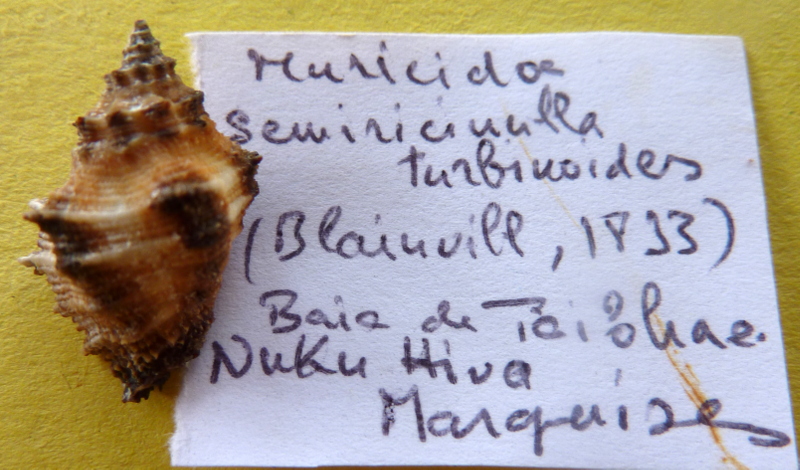 Muricidae
semiricinulla
turbinoides
(Blainvill, 1833)
Baie de Taiohae.
Nuku Hiva
Marquises